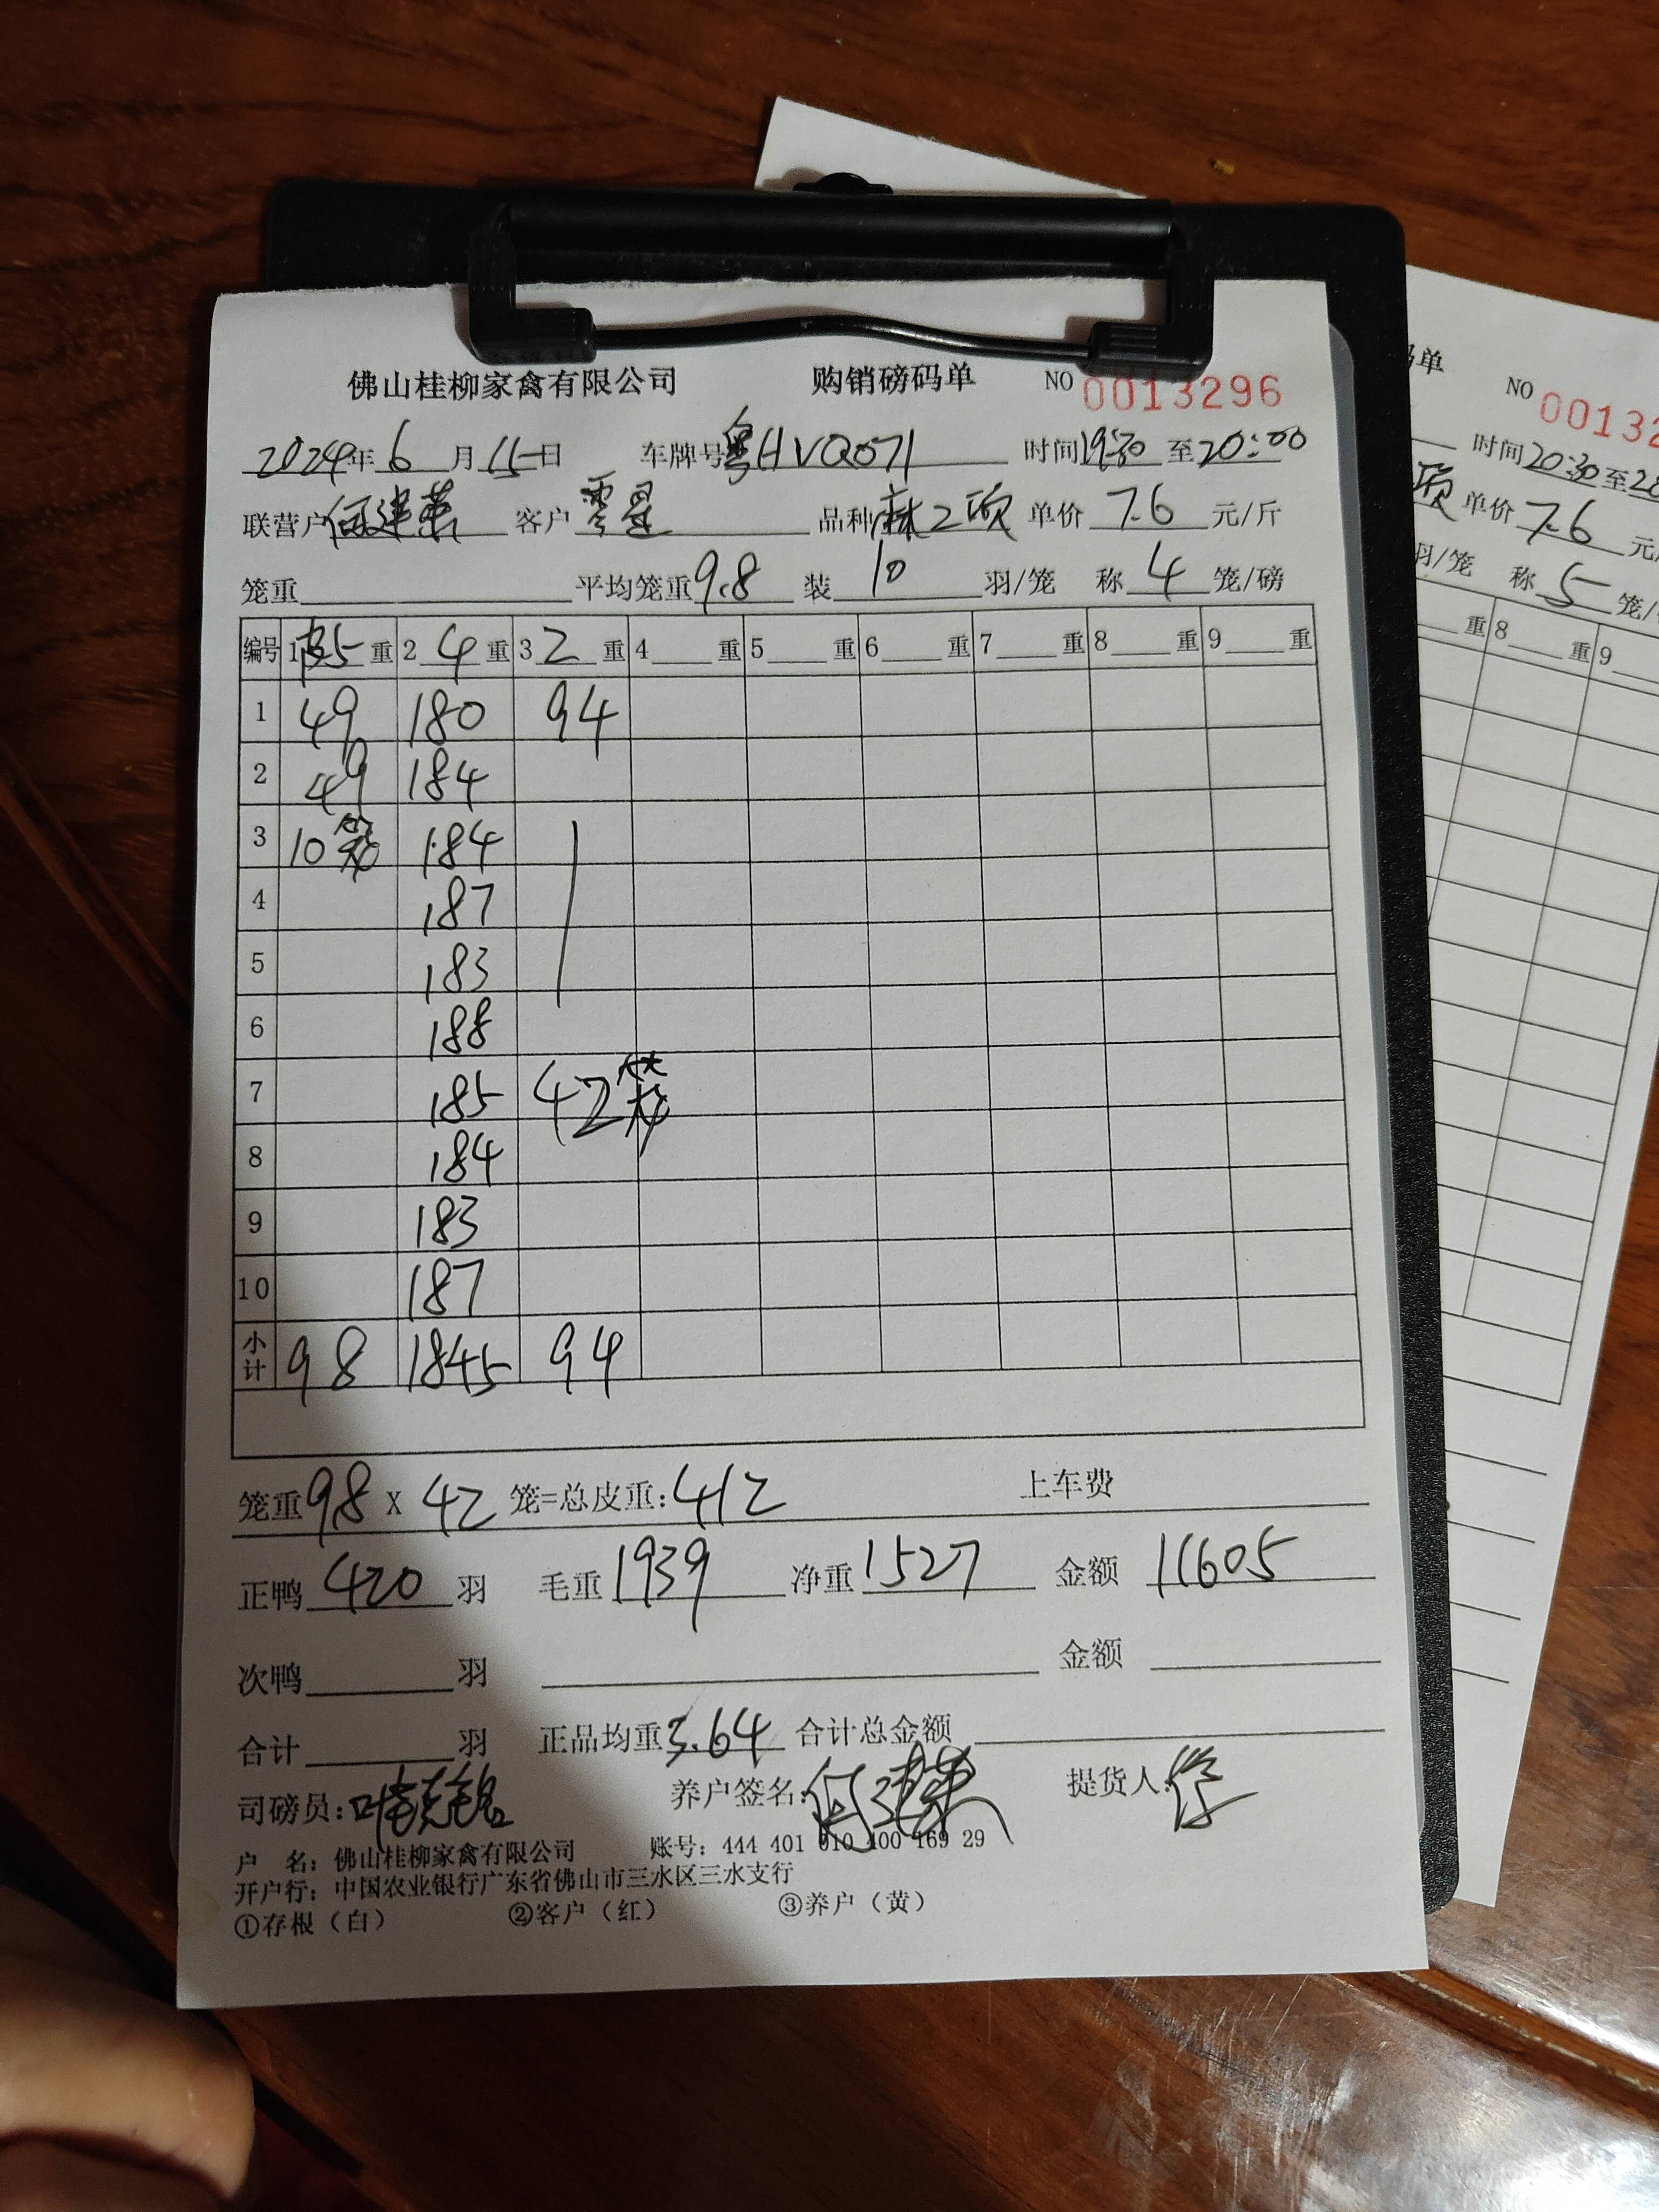 佛山桂柳家禽有限公司 购销磅码单 NO 0013296
2024年 6 月 15日 车牌号粤HVQ071 时间19:30 至20:00
联营户何建荣 客户零星 品种麻2项 单价 7.6 元/斤
笼重 平均笼重9.8 装 10 羽/笼 称 4 笼/磅
编号 1皮5重 2 4 重 3 2 重 4 重 5 重 6 重 7 重 8 重 9 重
1 49 180 94
2 49 184
3 10笼 184
4 187
5 183
6 188
7 185 42笼
8 184
9 183
10 187
小计 98 1845 94
笼重9.8 X 42 笼=总皮重:412 上车费
正鸭 420 羽 毛重 1939 净重 1527 金额 11605
次鸭 羽 金额
合计 羽 正品均重3.64 合计总金额
司磅员: 养户签名:何建荣 提货人:
户 名: 佛山桂柳家禽有限公司 账号: 444 401 010 400 169 29
开户行: 中国农业银行广东省佛山市三水区三水支行
①存根（白） ②客户（红） ③养户（黄）
码单 NO 00132
时间20:30至20
项 单价 7.6 元/
羽/笼 称 5 笼/
重 8 重 9